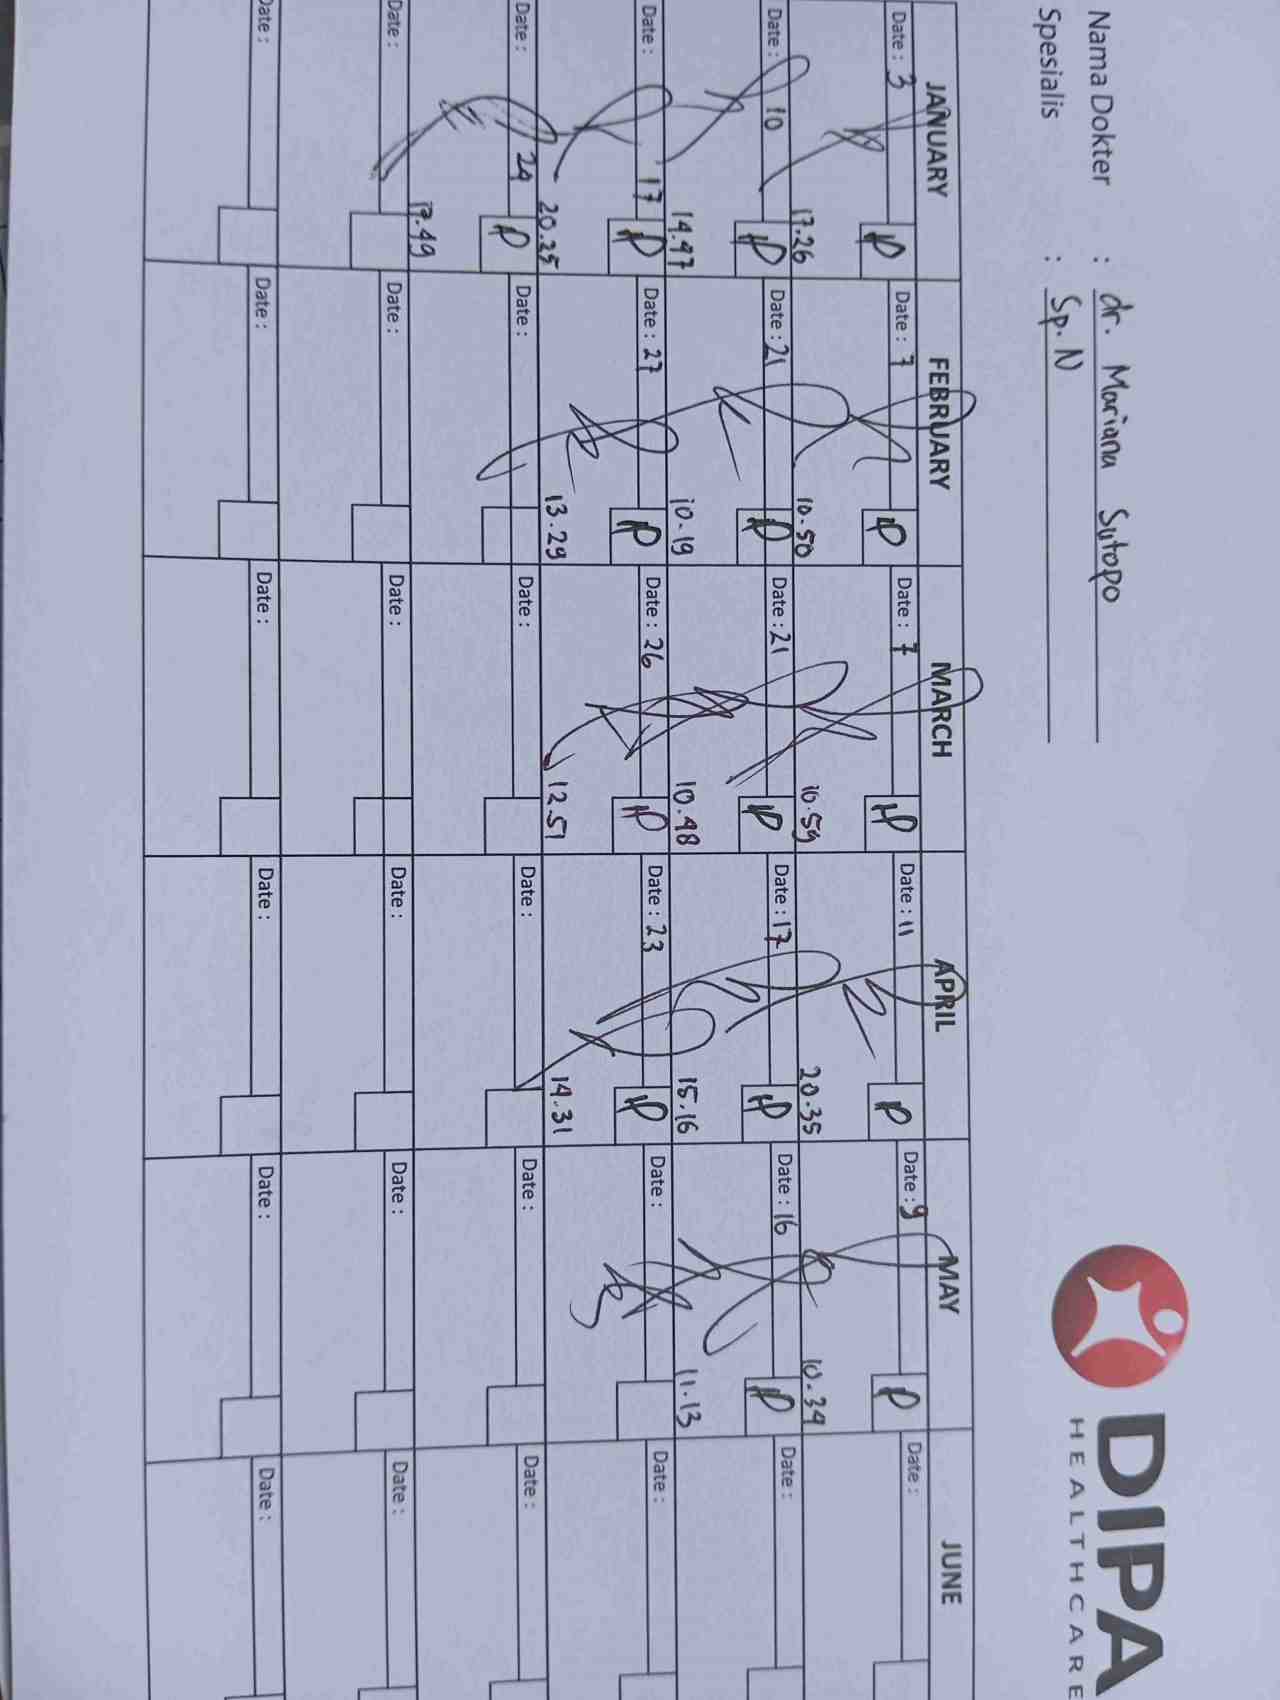 Nama Dokter : dr. Mariana Sutopo
Spesialis : Sp. N
DIPA
HEALTHCARE
JANUARY FEBRUARY MARCH APRIL MAY JUNE
Date : 3 Date : 7 Date : 7 Date : 11 Date : 9 Date :
17.26 10.50 10.59 20.35 10.34
Date : 10 Date : 21 Date : 21 Date : 17 Date : 16 Date :
14.47 10.19 10.48 15.16 11.13
Date : 17 Date : 27 Date : 26 Date : 23 Date : Date :
20.25 13.29 12.51 14.31
Date : 24 Date : Date : Date : Date : Date :
17.49
Date : Date : Date : Date : Date : Date :
Date : Date : Date : Date : Date : Date :